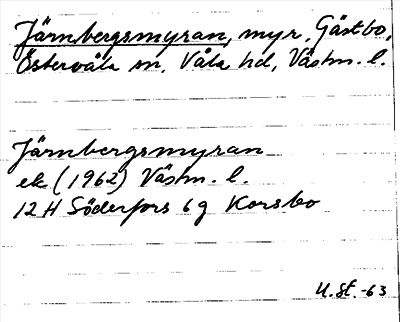 Järnbergsmyran, myr, Gästbo,
Östervåla sn, Våla hd, Västm. l.
Järnbergsmyran
ek (1962) Västm. l.
12 H Söderfors 6 g Korsbo
U. St. -63